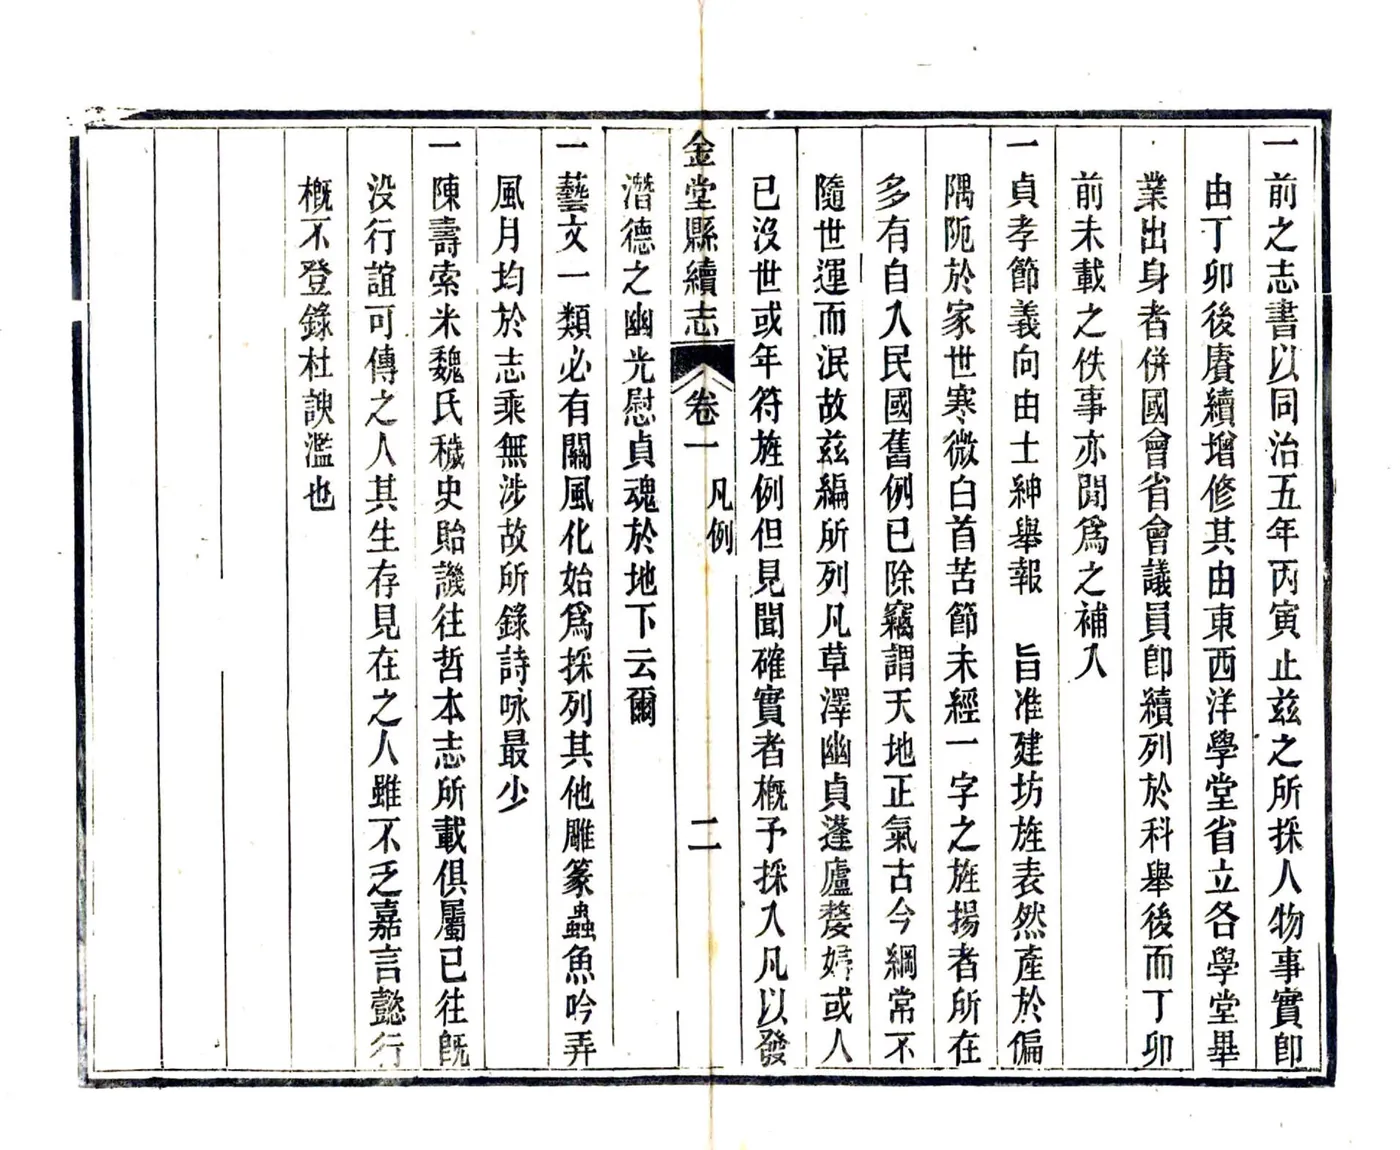 一前之志書以同治五年丙寅止玆之所採人物事實卽
由丁卯後賡續增修其由東西洋學堂省立各學堂畢
業出身者併國會省會議員卽續列於科舉後而丁卯
前未載之佚事亦閒爲之補入
一貞孝節義向由士紳舉報　旨准建坊旌表然產於偏
隅阨於家世寒微白首苦節未經一字之旌揚者所在
多有自入民國舊例已除竊謂天地正氣古今綱常不
隨世運而泯故玆編所列凡草澤幽貞蓬廬嫠婦或人
已沒世或年符旌例但見聞確實者槪予採入凡以發
金堂縣續志　卷一　凡例　二
潛德之幽光慰貞魂於地下云爾
一藝文一類必有關風化始爲採列其他雕篆蟲魚吟弄
風月均於志乘無涉故所錄詩咏最少
一陳壽索米魏氏穢史貽譏往哲本志所載俱屬已往旣
没行誼可傳之人其生存見在之人雖不乏嘉言懿行
槪不登錄杜諛濫也